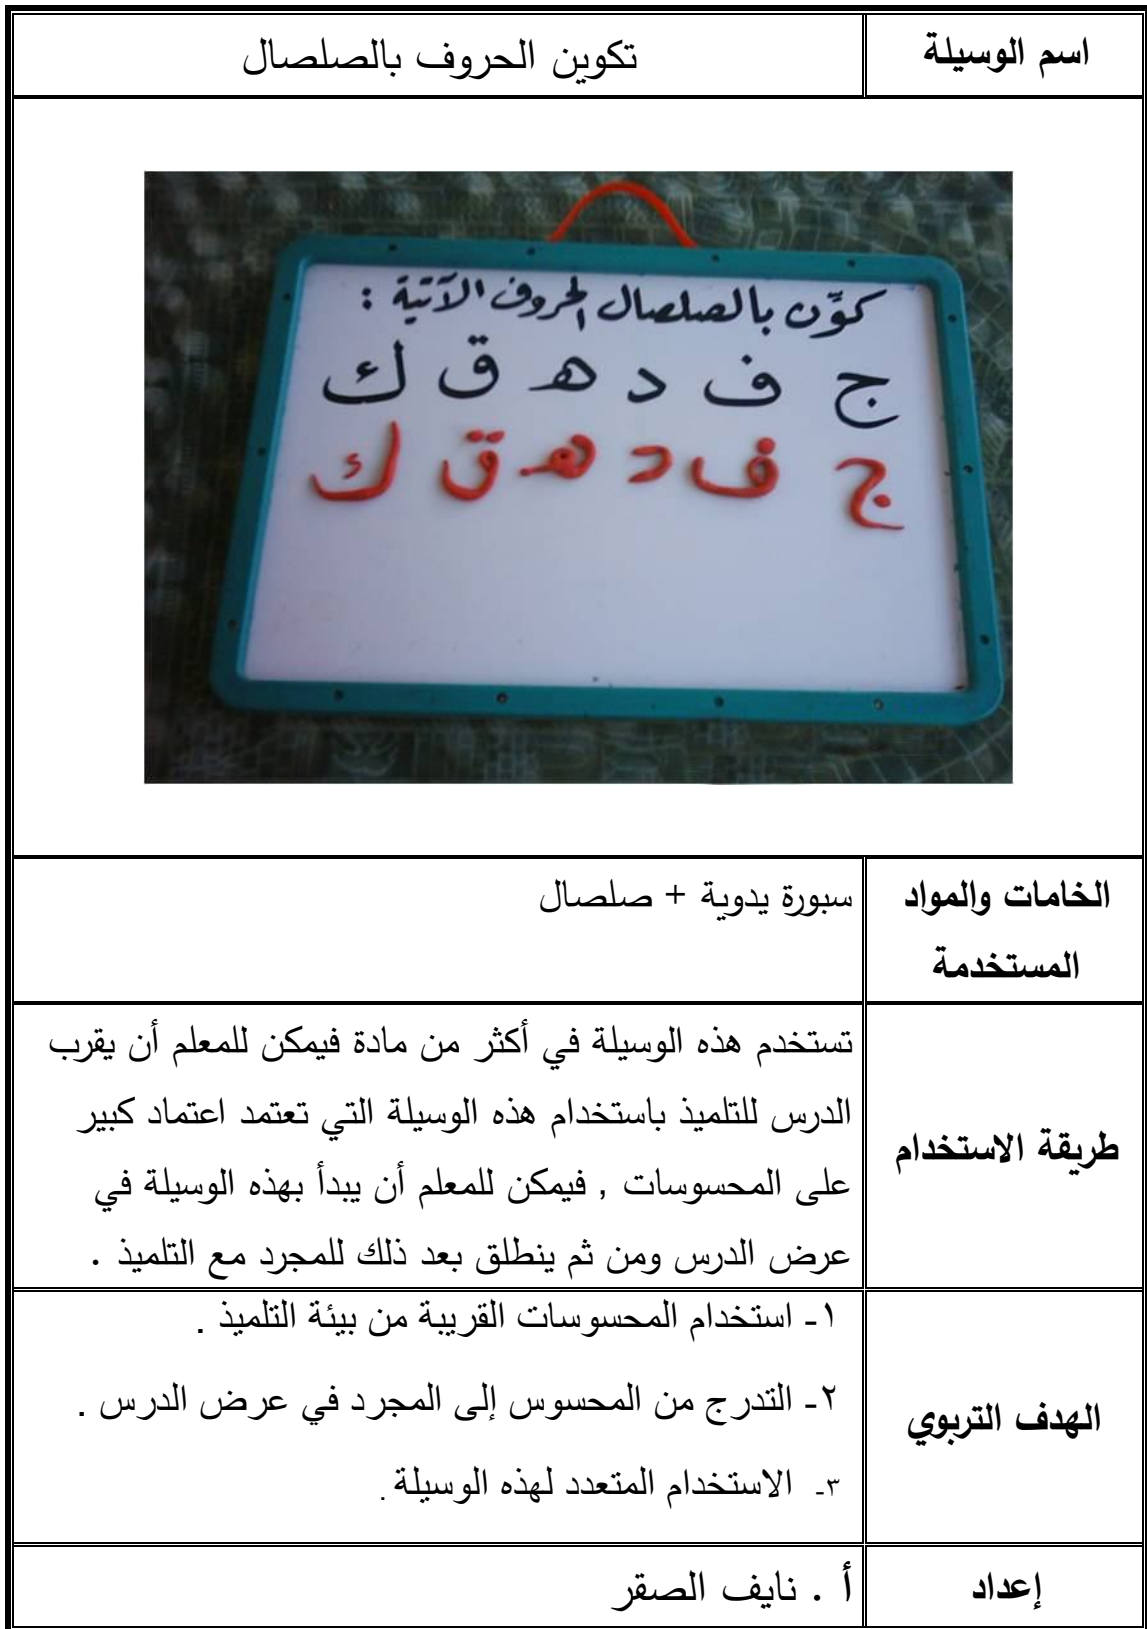 اسم الوسيلة
تكوين الحروف بالصلصال
كوّن بالصلصال الحروف الآتية :
ج ف د ه ق ك
ج ف د ه ق ك
الخامات والمواد
المستخدمة
سبورة يدوية + صلصال
طريقة الاستخدام
تستخدم هذه الوسيلة في أكثر من مادة فيمكن للمعلم أن يقرب
الدرس للتلميذ باستخدام هذه الوسيلة التي تعتمد اعتماد كبير
على المحسوسات , فيمكن للمعلم أن يبدأ بهذه الوسيلة في
عرض الدرس ومن ثم ينطلق بعد ذلك للمجرد مع التلميذ .
الهدف التربوي
١- استخدام المحسوسات القريبة من بيئة التلميذ .
٢- التدرج من المحسوس إلى المجرد في عرض الدرس .
٣- الاستخدام المتعدد لهذه الوسيلة .
إعداد
أ . نايف الصقر